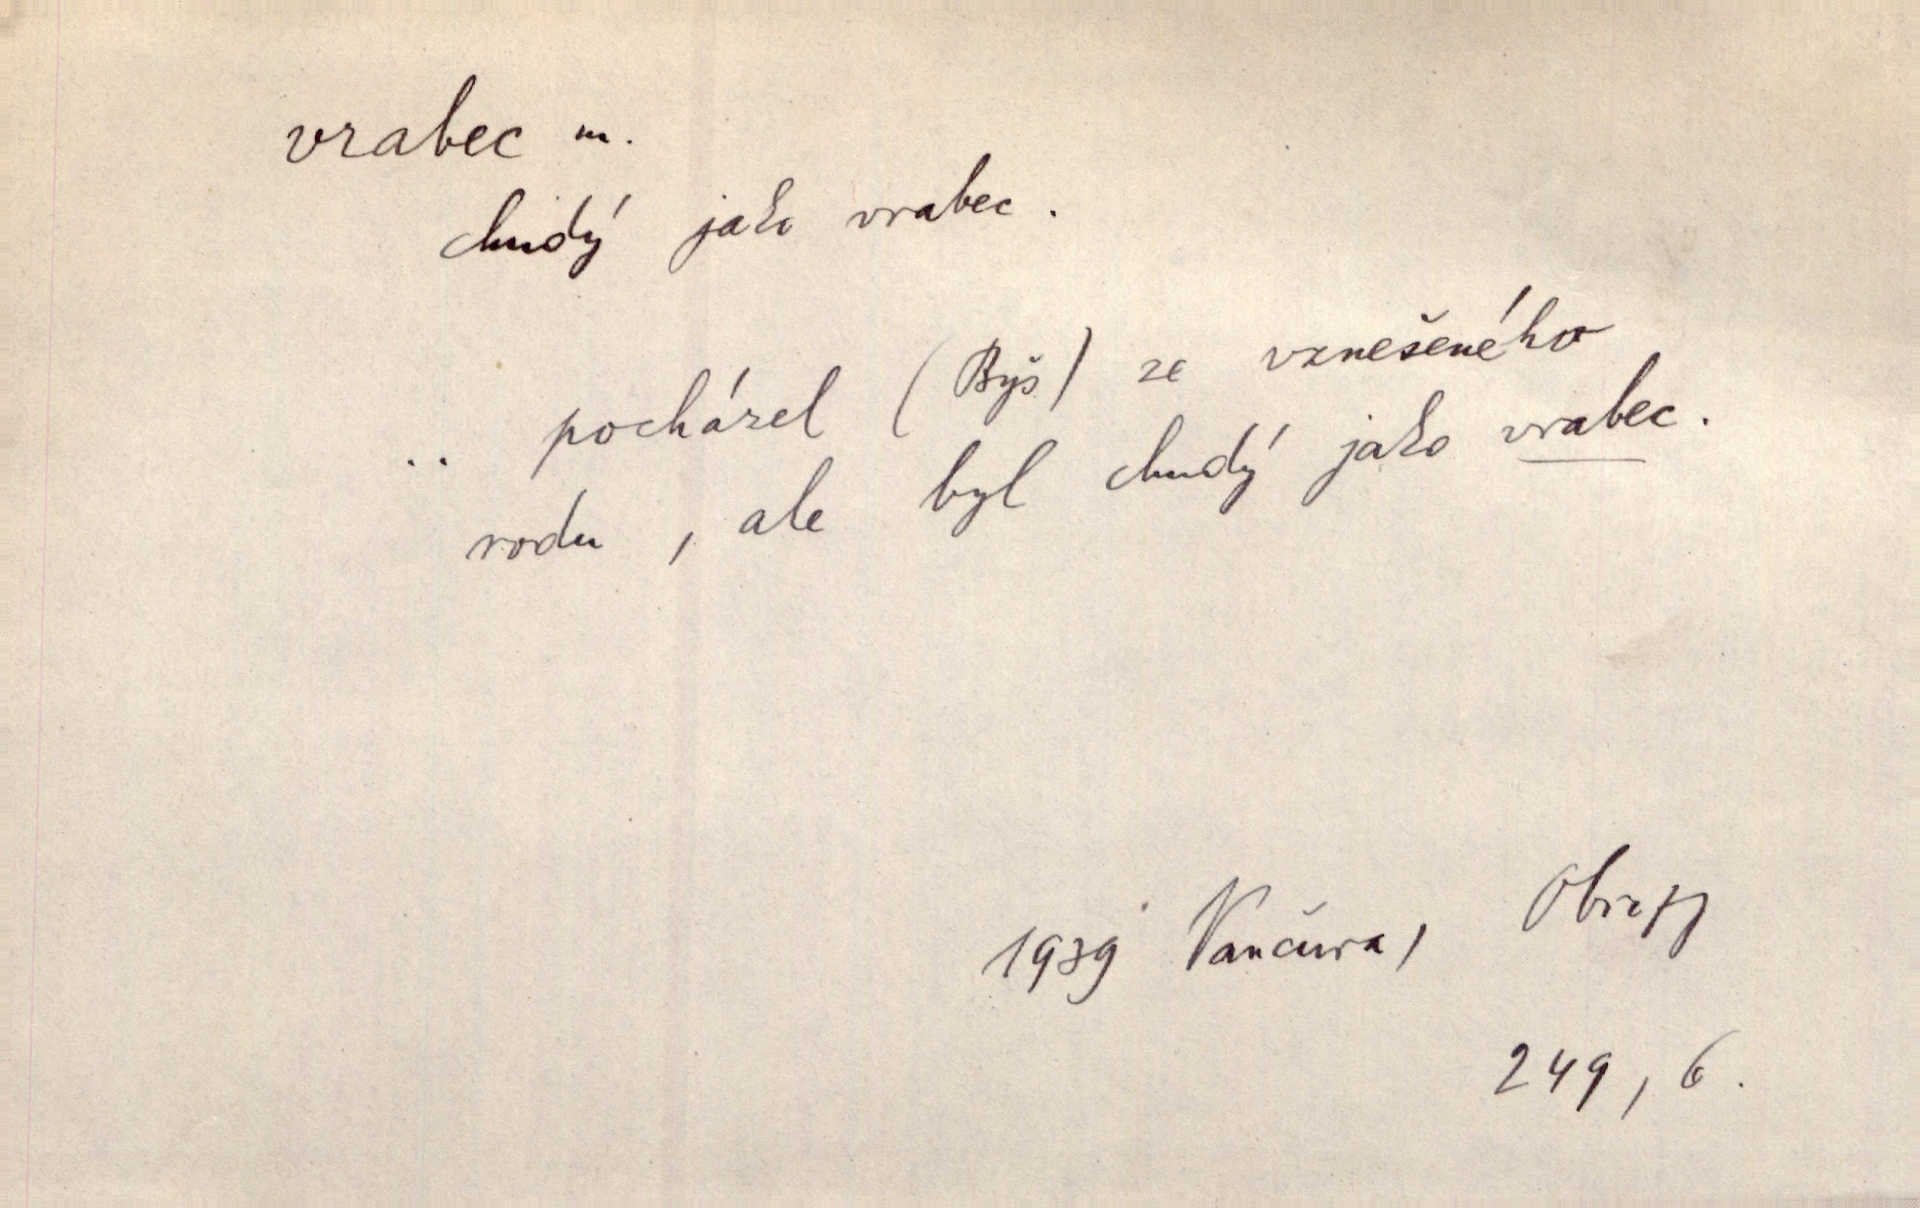 vrabec m.
chudý jako vrabec.
.. pocházel (Byš) ze vznešeného
rodu, ale byl chudý jako vrabec.
1939 Vančura, Obrazy
249, 6.